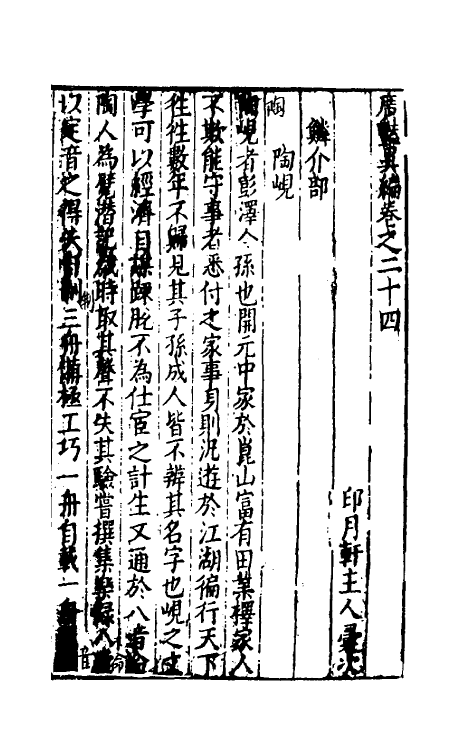 廣豔異編卷之二十四
印月軒主人彙次
鱗介部
陶峴
陶峴者彭澤令孫也開元中家於崑山富有田業擇家人
不欺能守事者悉付之家事身則汎遊於江湖徧行天下
往往數年不歸見其子孫成人皆不辨其名字也峴之文
學可以經濟自謂疎脫不為仕宦之計生又通於八音命
陶人為甓潛記歲時取其聲不失其驗嘗撰集樂錄八音
以定音之得失制三舟備極工巧一舟自載一舟